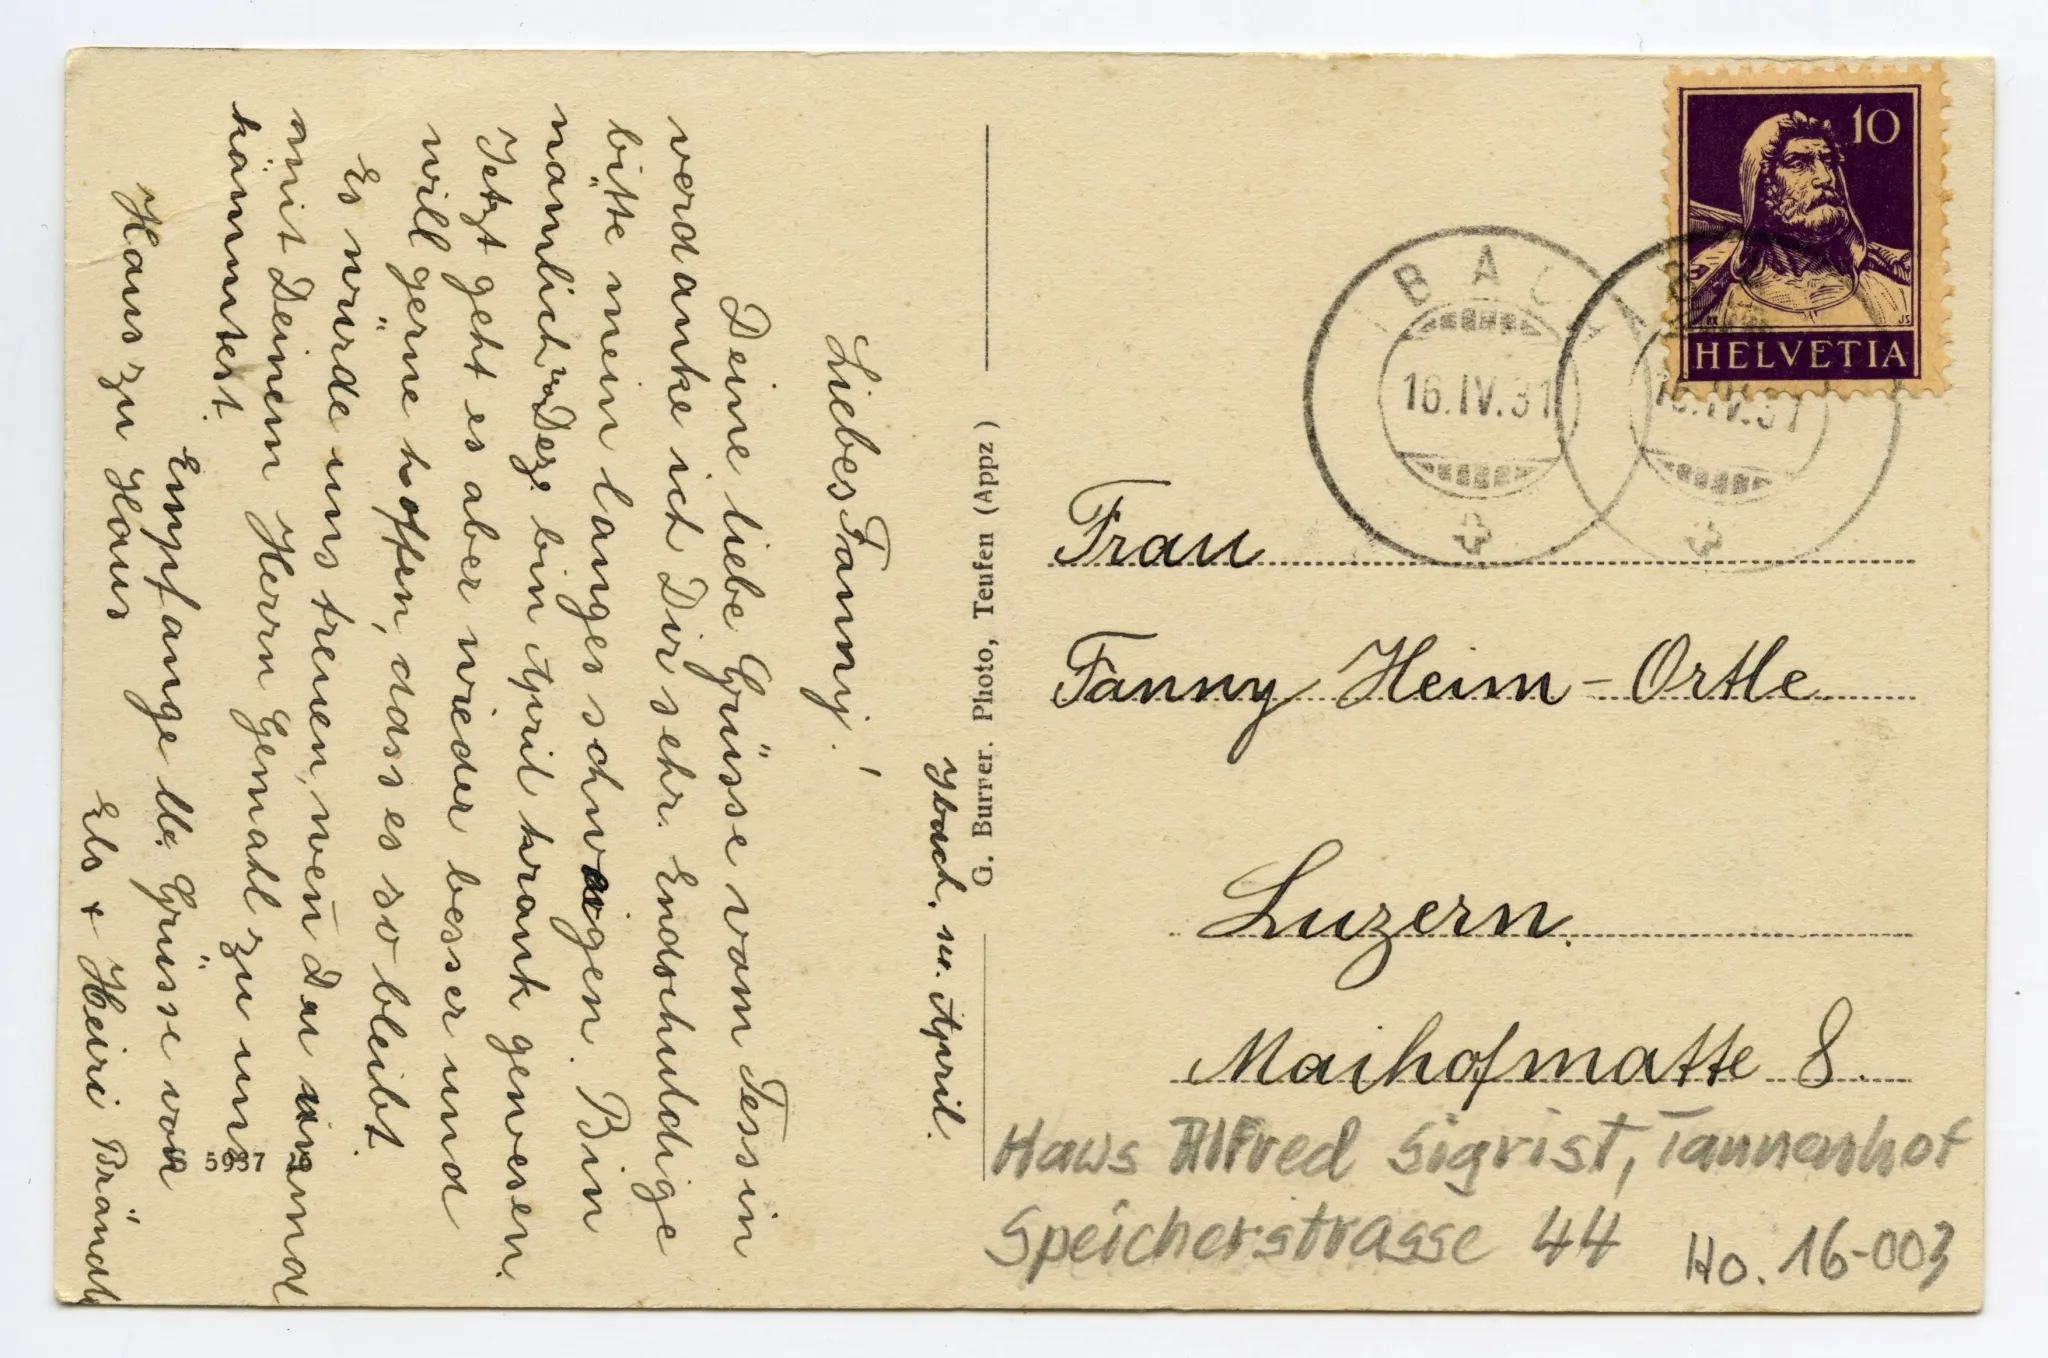 Ibach, im April.
Liebes Fanny!
Deine liebe Grüsse vom Tessin
verdanke ich Dir sehr. Endschuldige
bitte mein langes schweigen. Bin
nämlich von Dez. bin April krank gewesen.
Jetzt geht es aber wieder besser und
will gerne hoffen, dass es so bleibt.
Es würde uns freuen, wen̄ Du einmal
mit Deinem Herrn Gemahl zu uns
kämmtest.
Empfange lb. Grüsse von
Haus zu Haus
Els + Heiri Brändli
5937
G. Burrer. Photo, Teufen (Appz)
10
HELVETIA
IBACH
16.IV.31
16.IV.31
Frau
Fanny Heim-Ortle
Luzern.
Maihofmatte 8.
Haus Alfred Sigrist, Tannenhof
Speicherstrasse 44
Ho. 16-003